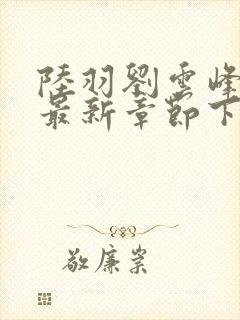 陸羽劉雲峰
最新章節下
敬廉崇